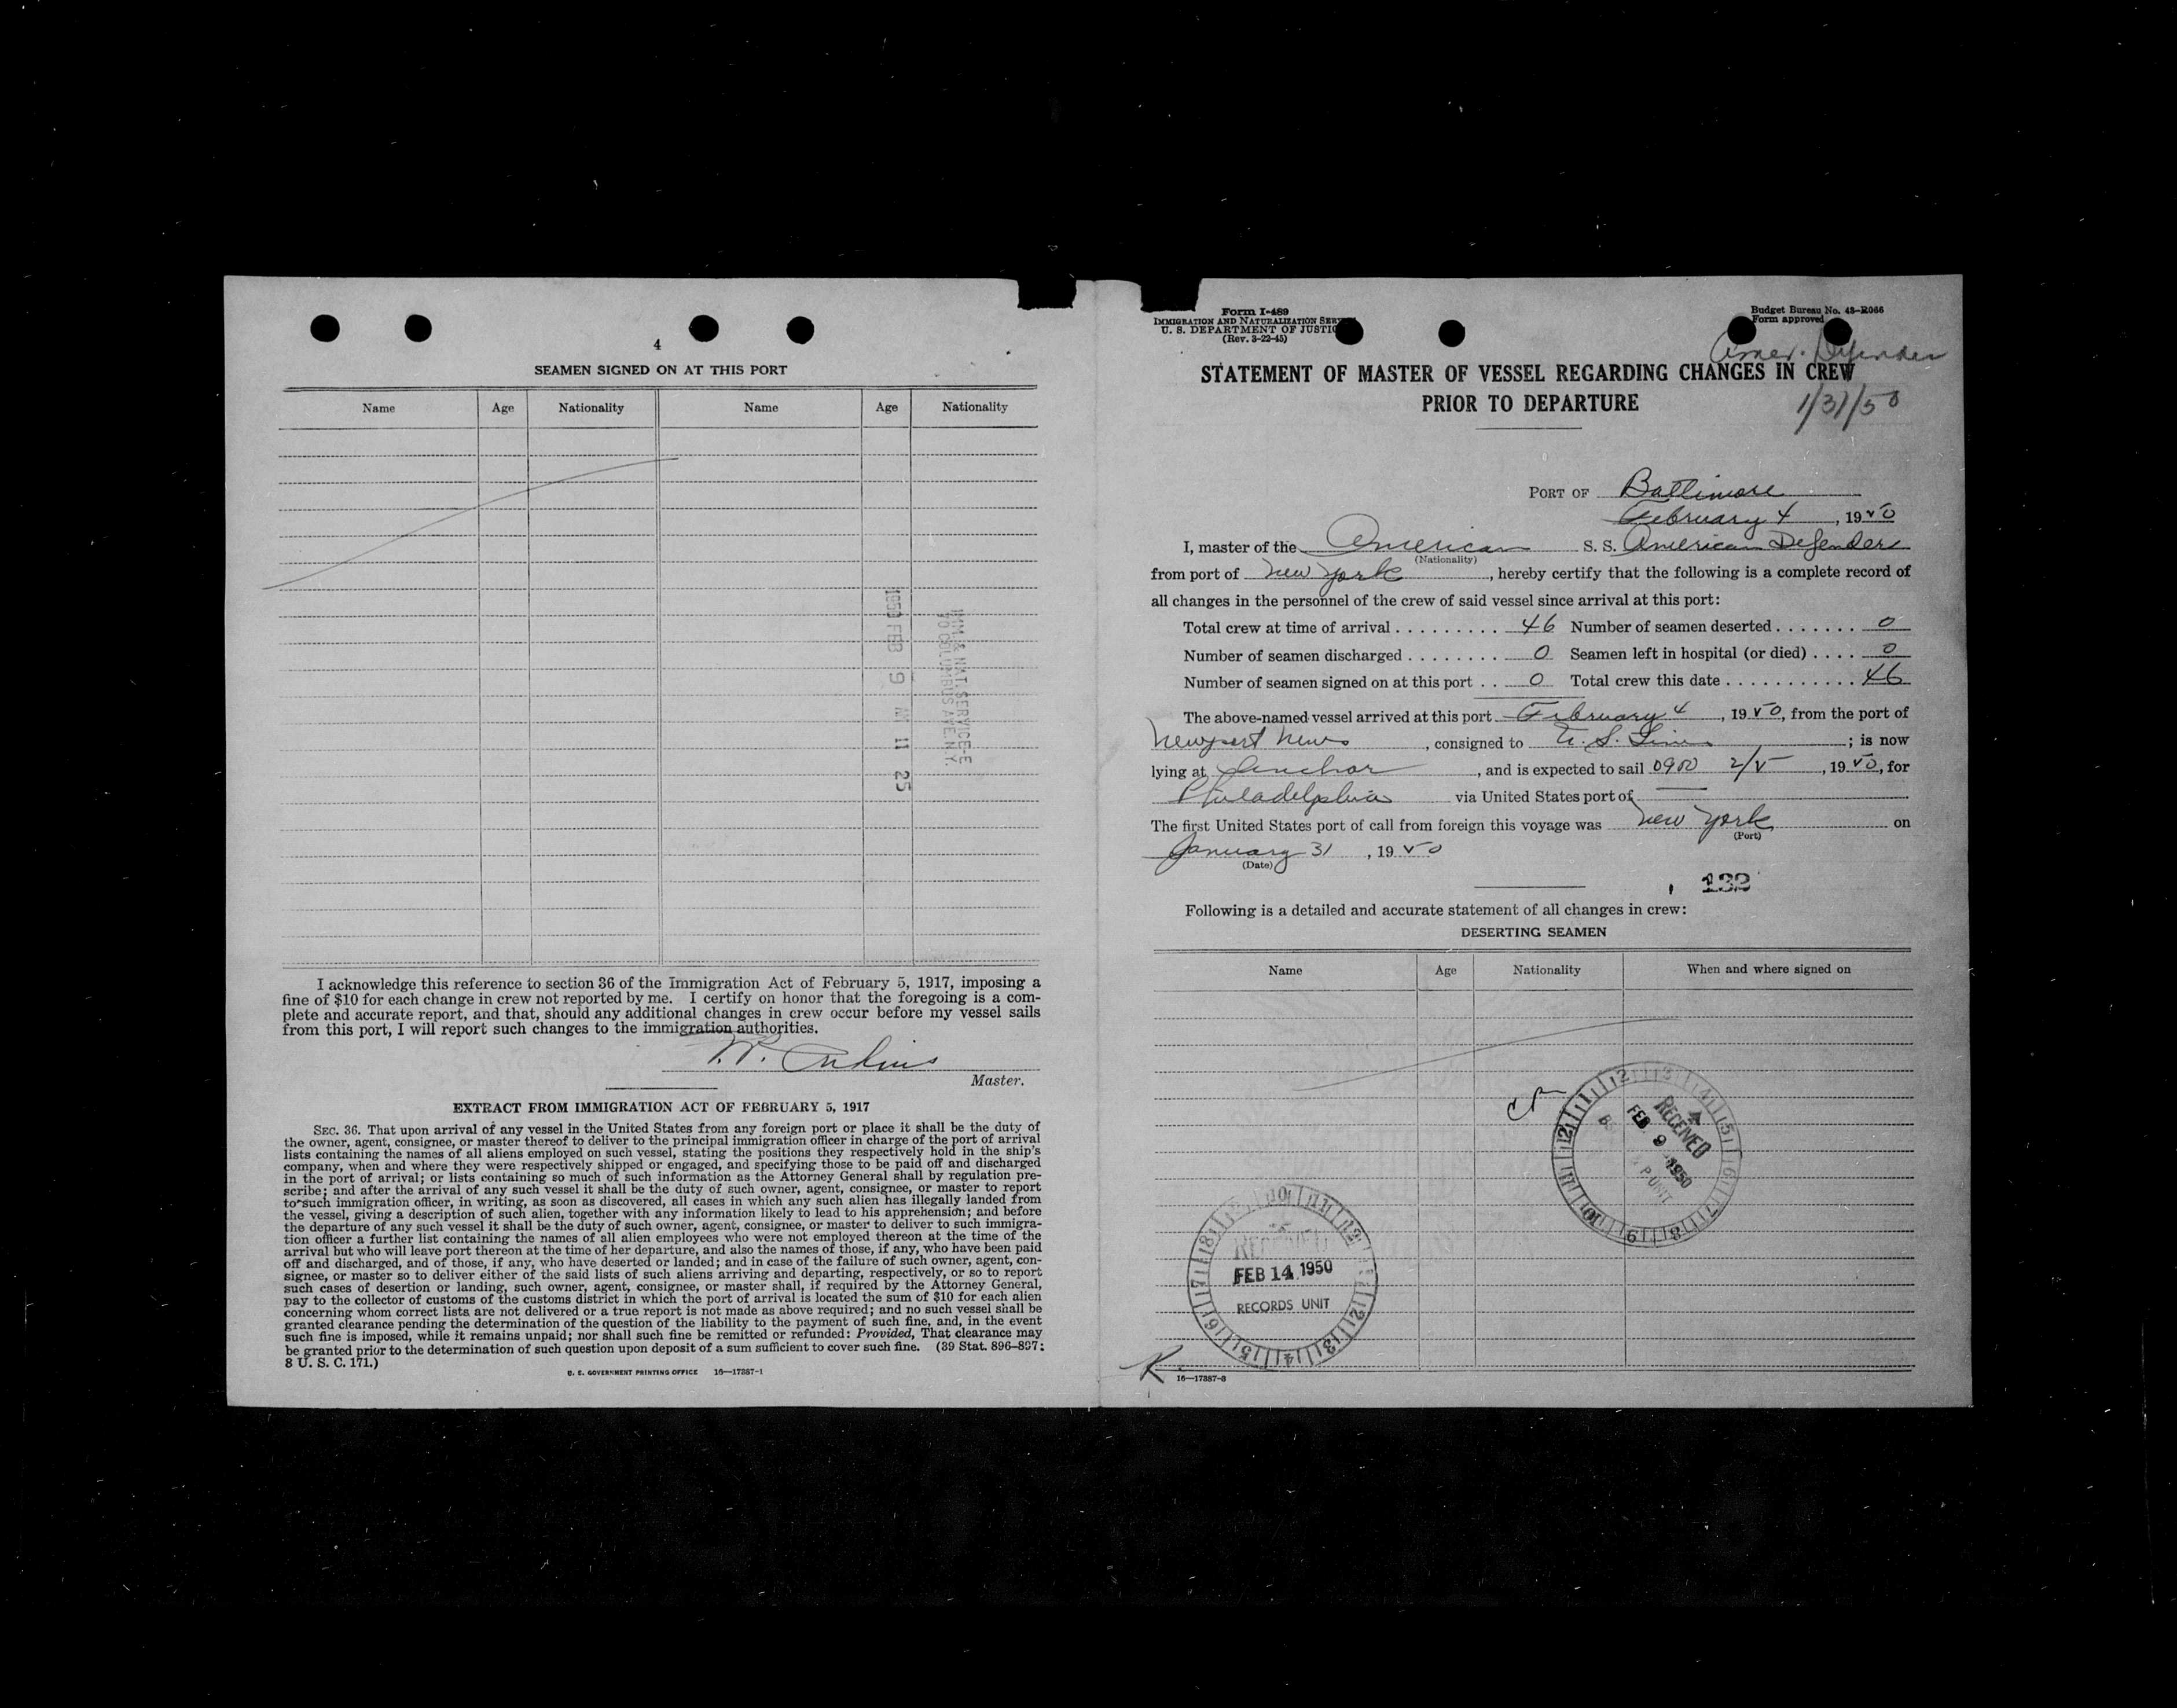 4
SEAMEN SIGNED ON AT THIS PORT
Name Age Nationality Name Age Nationality
1950 FEB 9 AM 11 25
IMM. & NAT. SERVICE
70 COLUMBUS AVE. N.Y.
I acknowledge this reference to section 36 of the Immigration Act of February 5, 1917, imposing a
fine of $10 for each change in crew not reported by me. I certify on honor that the foregoing is a com-
plete and accurate report, and that, should any additional changes in crew occur before my vessel sails
from this port, I will report such changes to the immigration authorities.
Master.
EXTRACT FROM IMMIGRATION ACT OF FEBRUARY 5, 1917
SEC. 36. That upon arrival of any vessel in the United States from any foreign port or place it shall be the duty of
the owner, agent, consignee, or master thereof to deliver to the principal immigration officer in charge of the port of arrival
lists containing the names of all aliens employed on such vessel, stating the positions they respectively hold in the ship's
company, when and where they were respectively shipped or engaged, and specifying those to be paid off and discharged
in the port of arrival; or lists containing so much of such information as the Attorney General shall by regulation pre-
scribe; and after the arrival of any such vessel it shall be the duty of such owner, agent, consignee, or master to report
to such immigration officer, in writing, as soon as discovered, all cases in which any such alien has illegally landed from
the vessel, giving a description of such alien, together with any information likely to lead to his apprehension; and before
the departure of any such vessel it shall be the duty of such owner, agent, consignee, or master to deliver to such immigra-
tion officer a further list containing the names of all alien employees who were not employed thereon at the time of the
arrival but who will leave port thereon at the time of her departure, and also the names of those, if any, who have been paid
off and discharged, and of those, if any, who have deserted or landed; and in case of the failure of such owner, agent, con-
signee, or master so to deliver either of the said lists of such aliens arriving and departing, respectively, or so to report
such cases of desertion or landing, such owner, agent, consignee, or master shall, if required by the Attorney General,
pay to the collector of customs of the customs district in which the port of arrival is located the sum of $10 for each alien
concerning whom correct lists are not delivered or a true report is not made as above required; and no such vessel shall be
granted clearance pending the determination of the question of the liability to the payment of such fine, and, in the event
such fine is imposed, while it remains unpaid; nor shall such fine be remitted or refunded: Provided, That clearance may
be granted prior to the determination of such question upon deposit of a sum sufficient to cover such fine. (39 Stat. 896–897;
8 U. S. C. 171.)
U. S. GOVERNMENT PRINTING OFFICE 16—17387-1
Form I-489
IMMIGRATION AND NATURALIZATION
U. S. DEPARTMENT OF JUSTIC
(Rev. 3-22-45)
Budget Bureau No. 43–R066
Form approved
Amer. Defender
1/31/50
STATEMENT OF MASTER OF VESSEL REGARDING CHANGES IN CREW
PRIOR TO DEPARTURE
PORT OF Baltimore
February 4, 1950
I, master of the American S. S. American Defender
(Nationality)
from port of New York, hereby certify that the following is a complete record of
all changes in the personnel of the crew of said vessel since arrival at this port:
Total crew at time of arrival 46 Number of seamen deserted 0
Number of seamen discharged 0 Seamen left in hospital (or died) 0
Number of seamen signed on at this port 0 Total crew this date 46
The above-named vessel arrived at this port February 4, 1950, from the port of
Newport News, consigned to U. S. Lines; is now
lying at Anchor, and is expected to sail 0900 2/5, 1950, for
Philadelphia via United States port of —
The first United States port of call from foreign this voyage was New York on
(Port)
January 31, 1950
(Date)
132
Following is a detailed and accurate statement of all changes in crew:
DESERTING SEAMEN
Name Age Nationality When and where signed on
RECEIVED
FEB 9 1950
RECEIVED
FEB 14 1950
RECORDS UNIT
K
16—17387-3